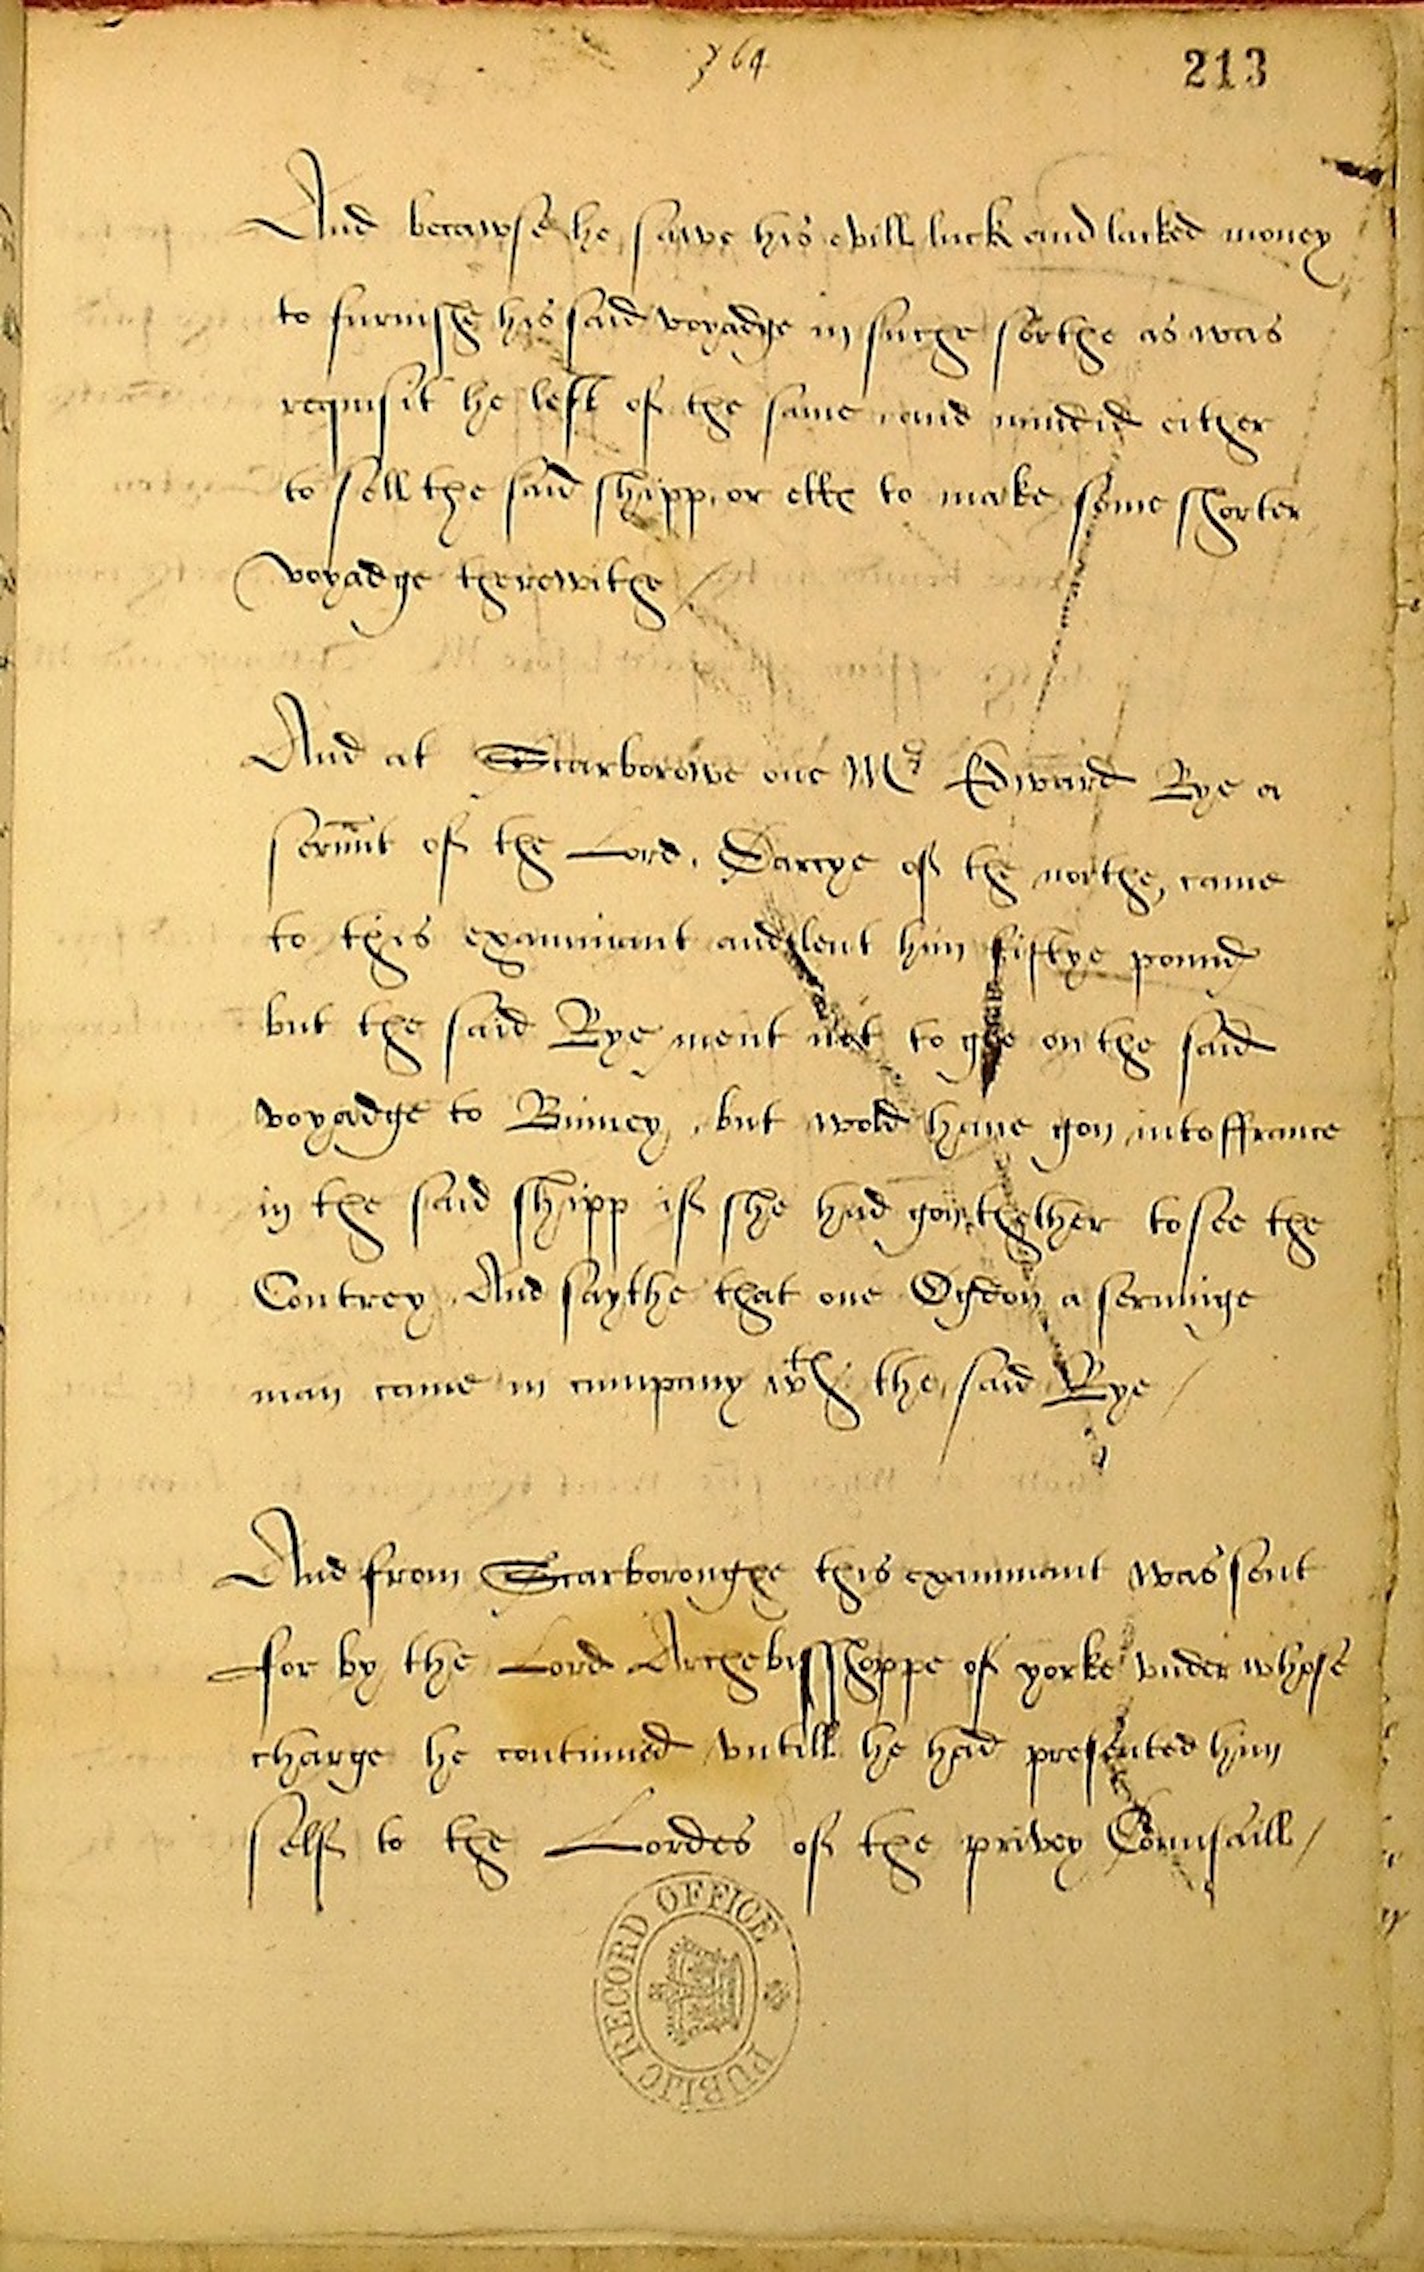 364
213
And becawse he sawe his evill luck and lacked money
to furnishe his said voyadge in suche sorthe as was
requisit he left of the same and mindid either
to sell the said shipp, or elle to make some shorter
voyadge therewithe /
And at Scarborowe one Mr Edward Rye a
servnt of the Lord Darcye of the northe, came
to this examinant and lent him fiftye pound
but the said Rye ment not to goe on the said
voyadge to Binney, but wold have gon into ffrance
in the said shipp if she had gon thether to see the
Contrey. And saythe that one Ogdon a servinge
man came in cumpany wth the said Rye /
And from Scarboroughe this examinant was sent
for by the Lord Archebisshoppe of yorke vnder whose
charge he continued vntill he had presented him
self to the Lordes of the privey Counsaill /
PUBLIC RECORD OFFICE